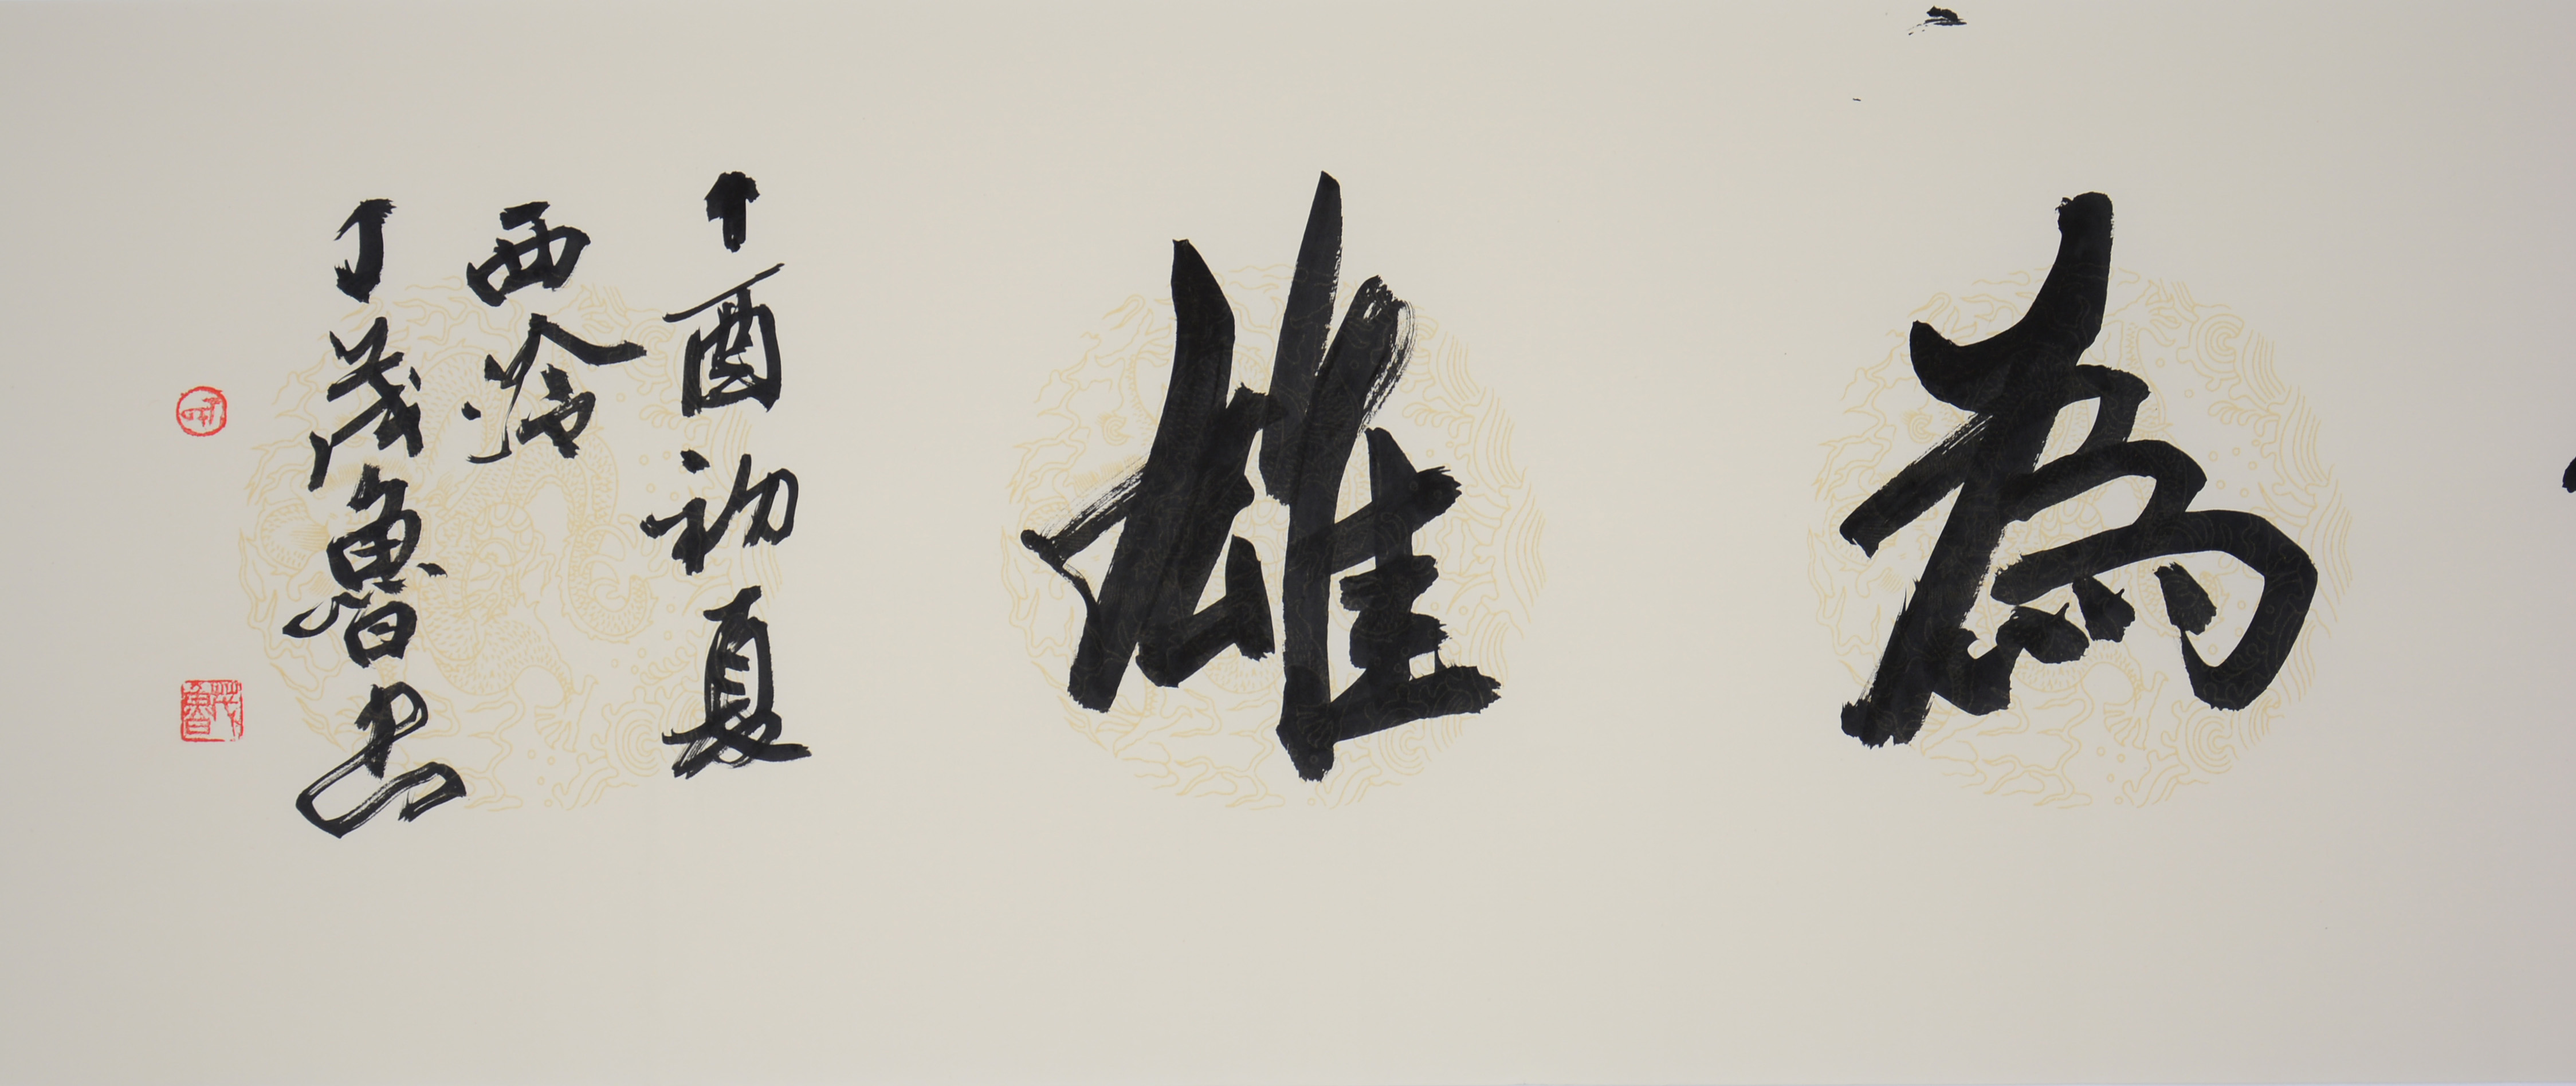 為雄
丁酉初夏
西泠
丁茂魯書
茂魯